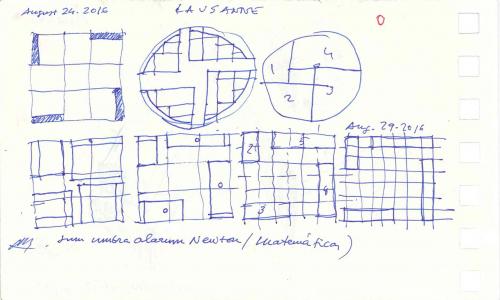 August 24. 2016 LAUSANNE
0
1 4
2 3
Aug. 29-2016
2 5
3 4
. Sum umbra alarum Newton (Matemática)